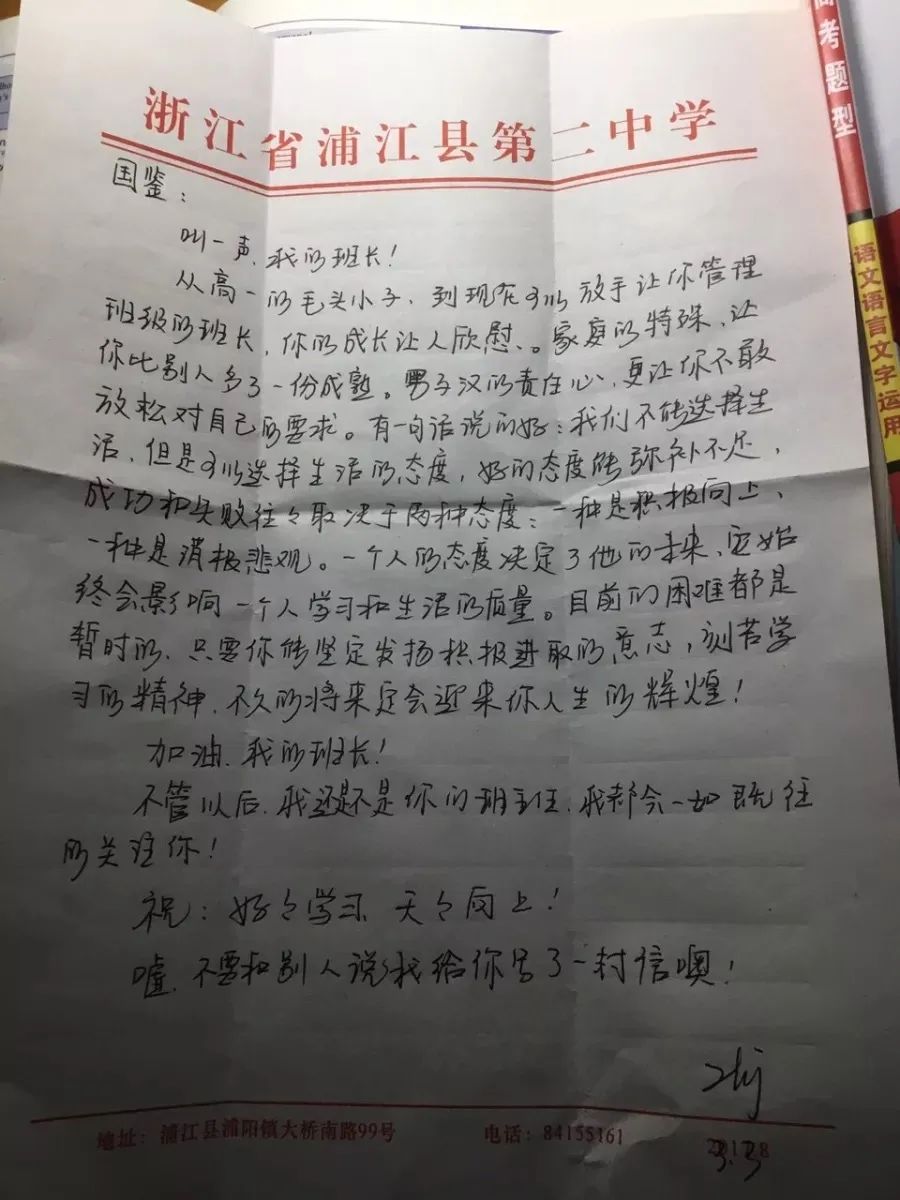 浙江省浦江县第二中学
国鉴：
叫一声，我的班长！
从高一的毛头小子，到现在可以放手让你管理
班级的班长，你的成长让人欣慰、。家庭的特殊，让
你比别人多了一份成熟。男子汉的责任心，更让你不敢
放松对自己的要求。有一句话说的好：我们不能选择生
活，但是可以选择生活的态度，好的态度能弥补不足，
成功和失败往々取决于两种态度：一种是积极向上，
一种是消极悲观。一个人的态度决定了他的未来，它始
终会影响一个人学习和生活的质量。目前的困难都是
暂时的，只要你能坚定发扬积极进取的意志，刻苦学
习的精神，不久的将来定会迎来你人生的辉煌！
加油，我的班长！
不管以后，我还是不是你的班主任，我都会一如既往
的关注你！
祝：好々学习，天々向上！
嘘，不要和别人说，我给你写了一封信噢！
3.3
地址：浦江县浦阳镇大桥南路99号 电话：84155161
高考题型
语文语言文字运用